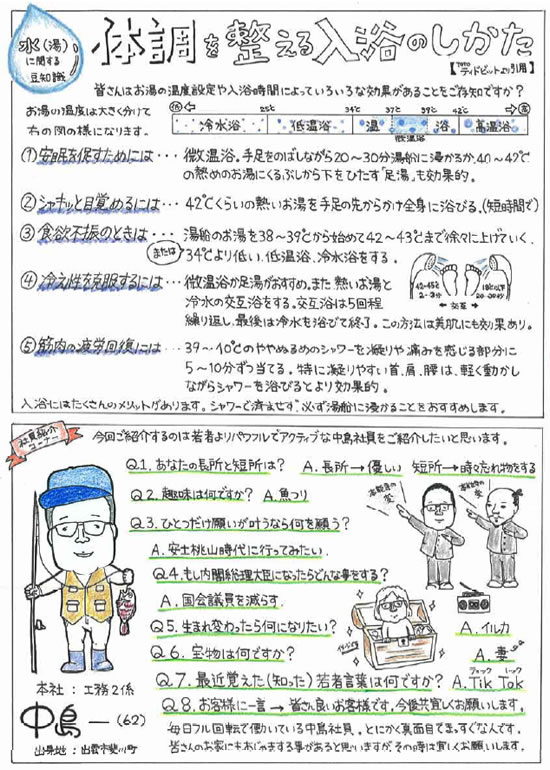 水(湯)
に関する
豆知識
体調を整える入浴のしかた
【TOTO ティドビットより引用】
皆さんはお湯の温度設定や入浴時間によっていろいろな効果があることをご存知ですか?
お湯の温度は大きく分けて
右の図の様になります。
低 25℃ 34℃ 37℃ 39℃ 42℃ 高
冷水浴 低温浴 温 浴 高温浴
微温浴
①安眠を促すためには… 微温浴。手足をのばしながら20~30分湯船に浸かるか、40~42℃
の熱めのお湯にくるぶしから下をひたす"足湯"も効果的。
②シャキッと目覚めるには… 42℃くらいの熱いお湯を手足の先からかけ全身に浴びる。(短時間で)
③食欲不振のときは… 湯船のお湯を38~39℃から始めて42~43℃まで徐々に上げていく。
または 34℃より低い、低温浴、冷水浴をする。
④冷え性を克服するには… 微温浴か足湯がおすすめ。また熱いお湯と
冷水の交互浴をする。交互浴は5回程
繰り返し、最後は冷水を浴びて終了。この方法は美肌にも効果あり。
42~45℃
2~3分
交互
⑤筋肉の疲労回復には… 39~40℃のややぬるめのシャワーを凝りや痛みを感じる部分に
5~10分ずつ当てる。特に凝りやすい首、肩、腰は、軽く動かし
ながらシャワーを浴びるとより効果的。
入浴にはたくさんのメリットがあります。シャワーで済ませず、必ず湯船に浸かることをおすすめします。
社員紹介
コーナー
今回ご紹介するのは若者よりパワフルでアクティブな中島社員をご紹介したいと思います。
Q1. あなたの長所と短所は? A. 長所→優しい 短所→時々忘れ物をする
Q2. 趣味は何ですか? A. 魚つり
Q3. ひとつだけ願いが叶うなら何を願う?
A. 安土桃山時代に行ってみたい.
本能寺の変
本能寺の変
Q4. もし内閣総理大臣になったらどんな事をする?
A. 国会議員を減らす.
Q5. 生まれ変わったら何になりたい? A. イルカ
Q6. 宝物は何ですか? A. 妻
Q7. 最近覚えた(知った)若者言葉は何ですか? A. Tik Tok
ティック トック
Q8. お客様に一言→皆さん良いお客様です。今後共宜しくお願いします。
毎日フル回転で働いている中島社員。とにかく真面目でまっすぐなんです。
皆さんのお家にもおじゃまする事があると思いますが、その時は宜しくお願いします。
本社:工務2係
中島一(62)
出身地:出雲市斐川町